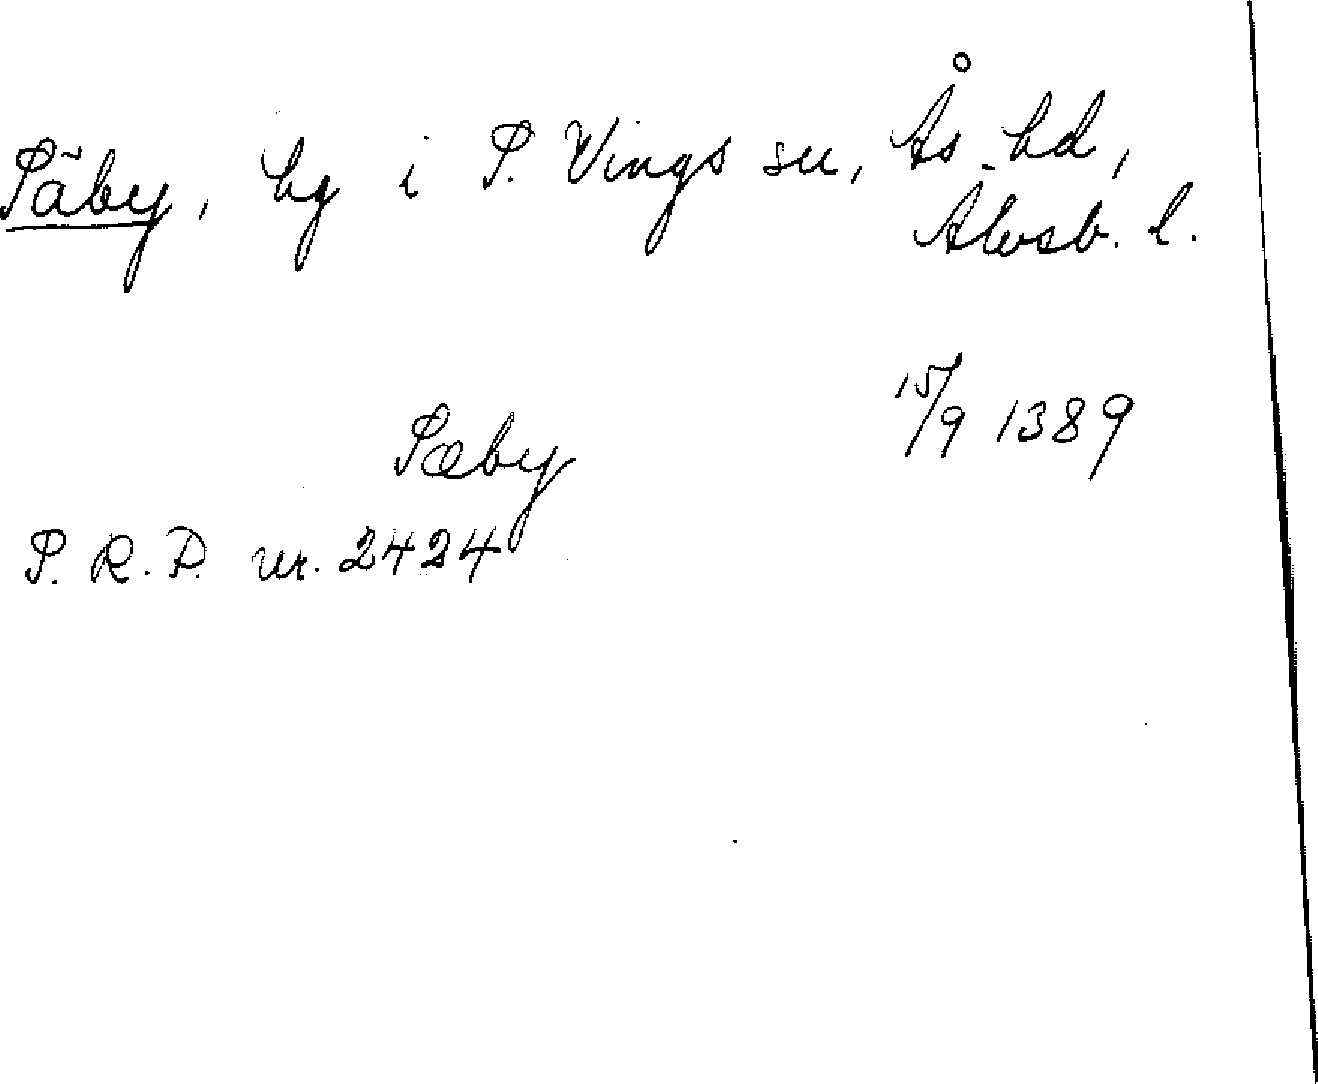 Säby, hg i S. Vings sn, Ås hd,
Älvsb. l.
Sæby 15/9 1389
S. R. P. nr. 2424